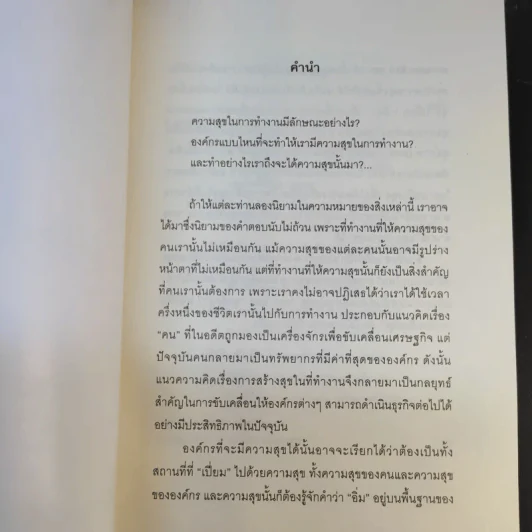 คำนำ
ความสุขในการทำงานมีลักษณะอย่างไร?
องค์กรแบบไหนที่จะทำให้เรามีความสุขในการทำงาน?
และทำอย่างไรเราถึงจะได้ความสุขนั้นมา?...
ถ้าให้แต่ละท่านลองนิยามในความหมายของสิ่งเหล่านี้ เราอาจ
ได้มาซึ่งนิยามของคำตอบนับไม่ถ้วน เพราะที่ทำงานที่ให้ความสุขของ
คนเรานั้นไม่เหมือนกัน แม้ความสุขของแต่ละคนนั้นอาจมีรูปร่าง
หน้าตาที่ไม่เหมือนกัน แต่ที่ทำงานที่ให้ความสุขนั้นก็ยังเป็นสิ่งสำคัญ
ที่คนเรานั้นต้องการ เพราะเราคงไม่อาจปฏิเสธได้ว่าเราได้ใช้เวลา
ครึ่งหนึ่งของชีวิตเรานั้นไปกับการทำงาน ประกอบกับแนวคิดเรื่อง
“คน” ที่ในอดีตถูกมองเป็นเครื่องจักรเพื่อขับเคลื่อนเศรษฐกิจ แต่
ปัจจุบันคนกลายมาเป็นทรัพยากรที่มีค่าที่สุดขององค์กร ดังนั้น
แนวความคิดเรื่องการสร้างสุขในที่ทำงานจึงกลายมาเป็นกลยุทธ์
สำคัญในการขับเคลื่อนให้องค์กรต่างๆ สามารถดำเนินธุรกิจต่อไปได้
อย่างมีประสิทธิภาพในปัจจุบัน
องค์กรที่จะมีความสุขได้นั้นอาจจะเรียกได้ว่าต้องเป็นทั้ง
สถานที่ที่ “เปี่ยม” ไปด้วยความสุข ทั้งความสุขของคนและความสุข
ขององค์กร และความสุขนั้นก็ต้องรู้จักคำว่า “อิ่ม” อยู่บนพื้นฐานของ